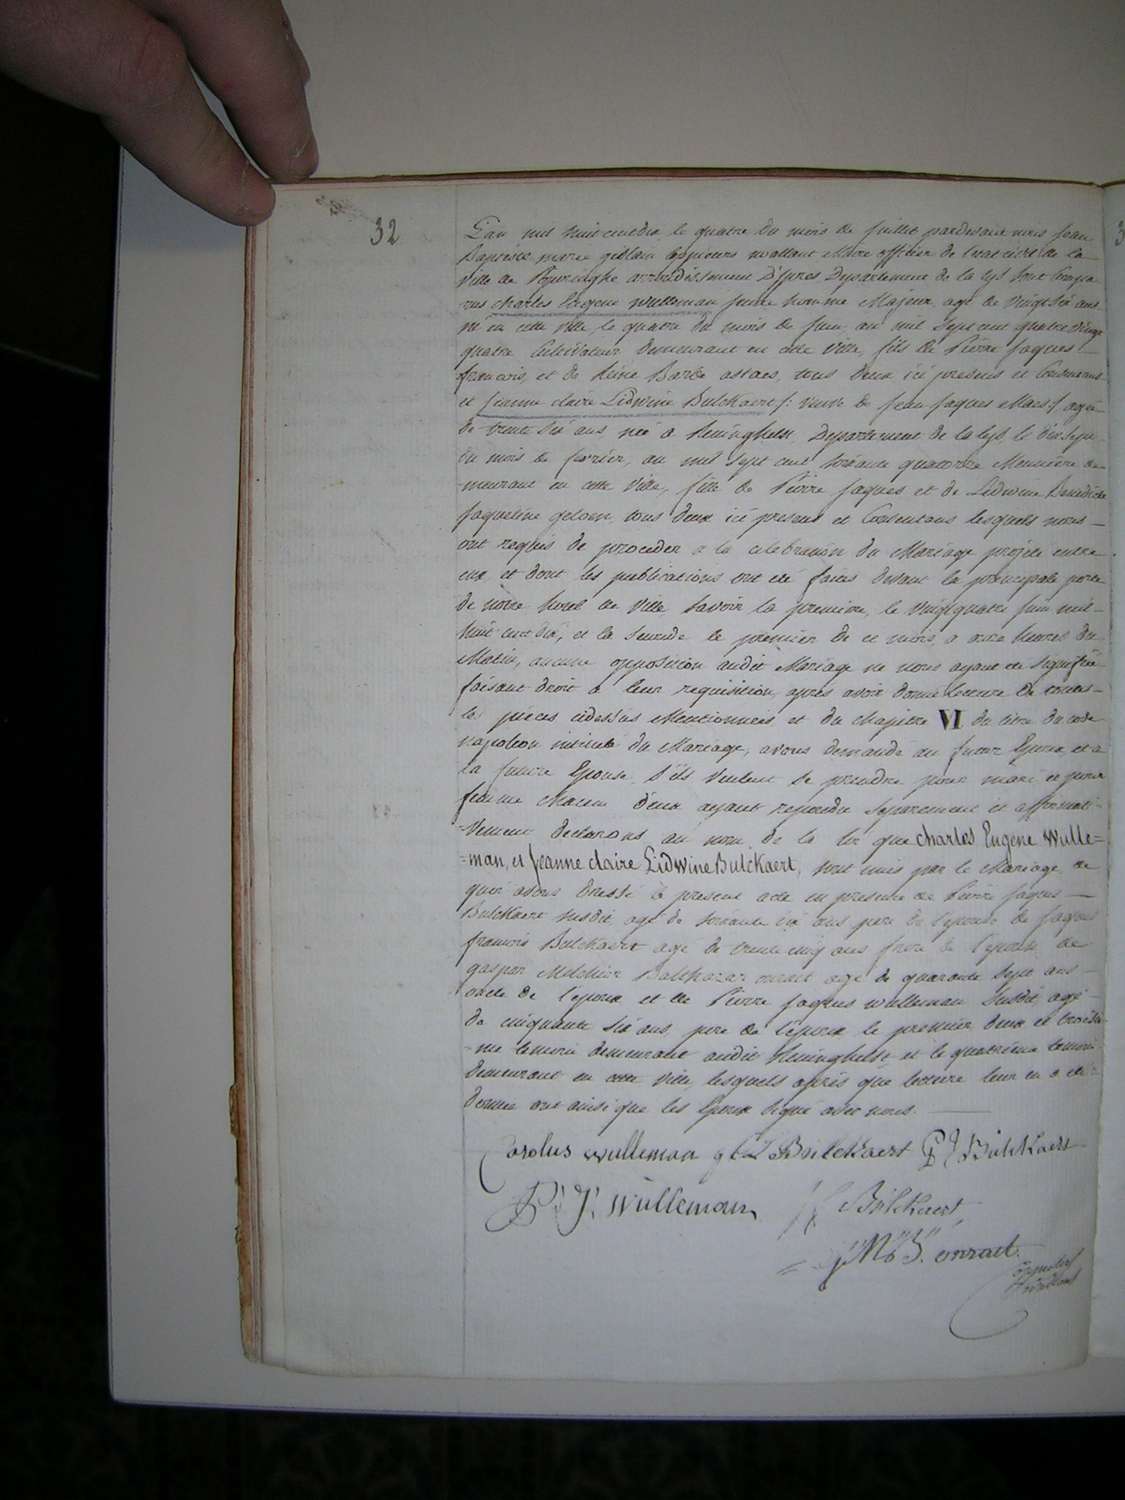 32
L'an mil huit cent dix le quatre du mois de juillet pardevant nous Jean
Baptiste marie gislain wallaert Maire officier de l'etat civil de la
Ville de Poperinghe arrondissement D'ypres Departement de la lys sont Compa
rus charles Eugene Wulleman jeune homme Majeur, agé de vingt six ans
né en cette ville le quatre du mois de juin, an mil sept cent quatre vingt
quatre Cultivateur demeurant en cette ville, fils de Pierre Jaques
francois, et de Reine Barbe astaes, tous deux ici presens et Consentans
et Jeanne claire Lidwine Bulckaert /: veuve de Jean Jaques Maes :/ agée
de trente six ans née a Reninghelst, Departement de la lys, le dix sept
du mois de fevrier, an mil sept cent soixante quatorze Menagere de
meurant en cette ville, fille de Pierre Jaques et de Lidwine Benedicte
Jaqueline geloen, tous deux ici presens et Consentans lesquels nous
ont requis de proceder a la celebration du Mariage projeté entre
eux, et dont les publications ont été faites devant la principale porte
de notre hotel de Ville, savoir la premiere, le vingt quatre juin mil
huit cent dix, et la seconde le premier de ce mois, a onze heures du
Matin, aucune opposition audit Mariage ne nous ayant été signifiée
faisant droit a leur requisition, apres avoir donné lecture de toutes
les pieces cidessus Mentionnées et du chapitre VI du titre du code
napoleon intitulé du Mariage, avons demandé au futur Epoux et a
la future Epouse s'ils veulent se prendre pour mari et pour
femme chacun d'eux ayant repondu separement et affirmati-
-vement declarons au nom de la loi que charles Eugene Wulle=
=man, et Jeanne claire Lidwine Bulckaert, sont unis par le Mariage, de
quoi avons dressé le present acte en presence de Pierre Jaques
Bulckaert susdit agé de soixante six ans pere de l'epouse de Jaques
francois Bulckaert agé de trente cinq ans frere de l'epouse, de
gaspar Melchior Balthazar onraet agé de quarante sept ans
oncle de l'epoux et de Pierre Jaques wulleman susdit agé
de cinquante six ans, pere de l'epoux le premier deux et troisie-
-me temoin demeurant audit Reninghelst, et le quatrieme temoin
demeurant en cette ville, lesquels après que lecture leur en a été
donnée ont ainsi que les Epoux signé avec nous.
Carolus wulleman J C L Bulckaert P J Bulckaert
P: J: Wulleman J f Bulckaert
J M B. onraet